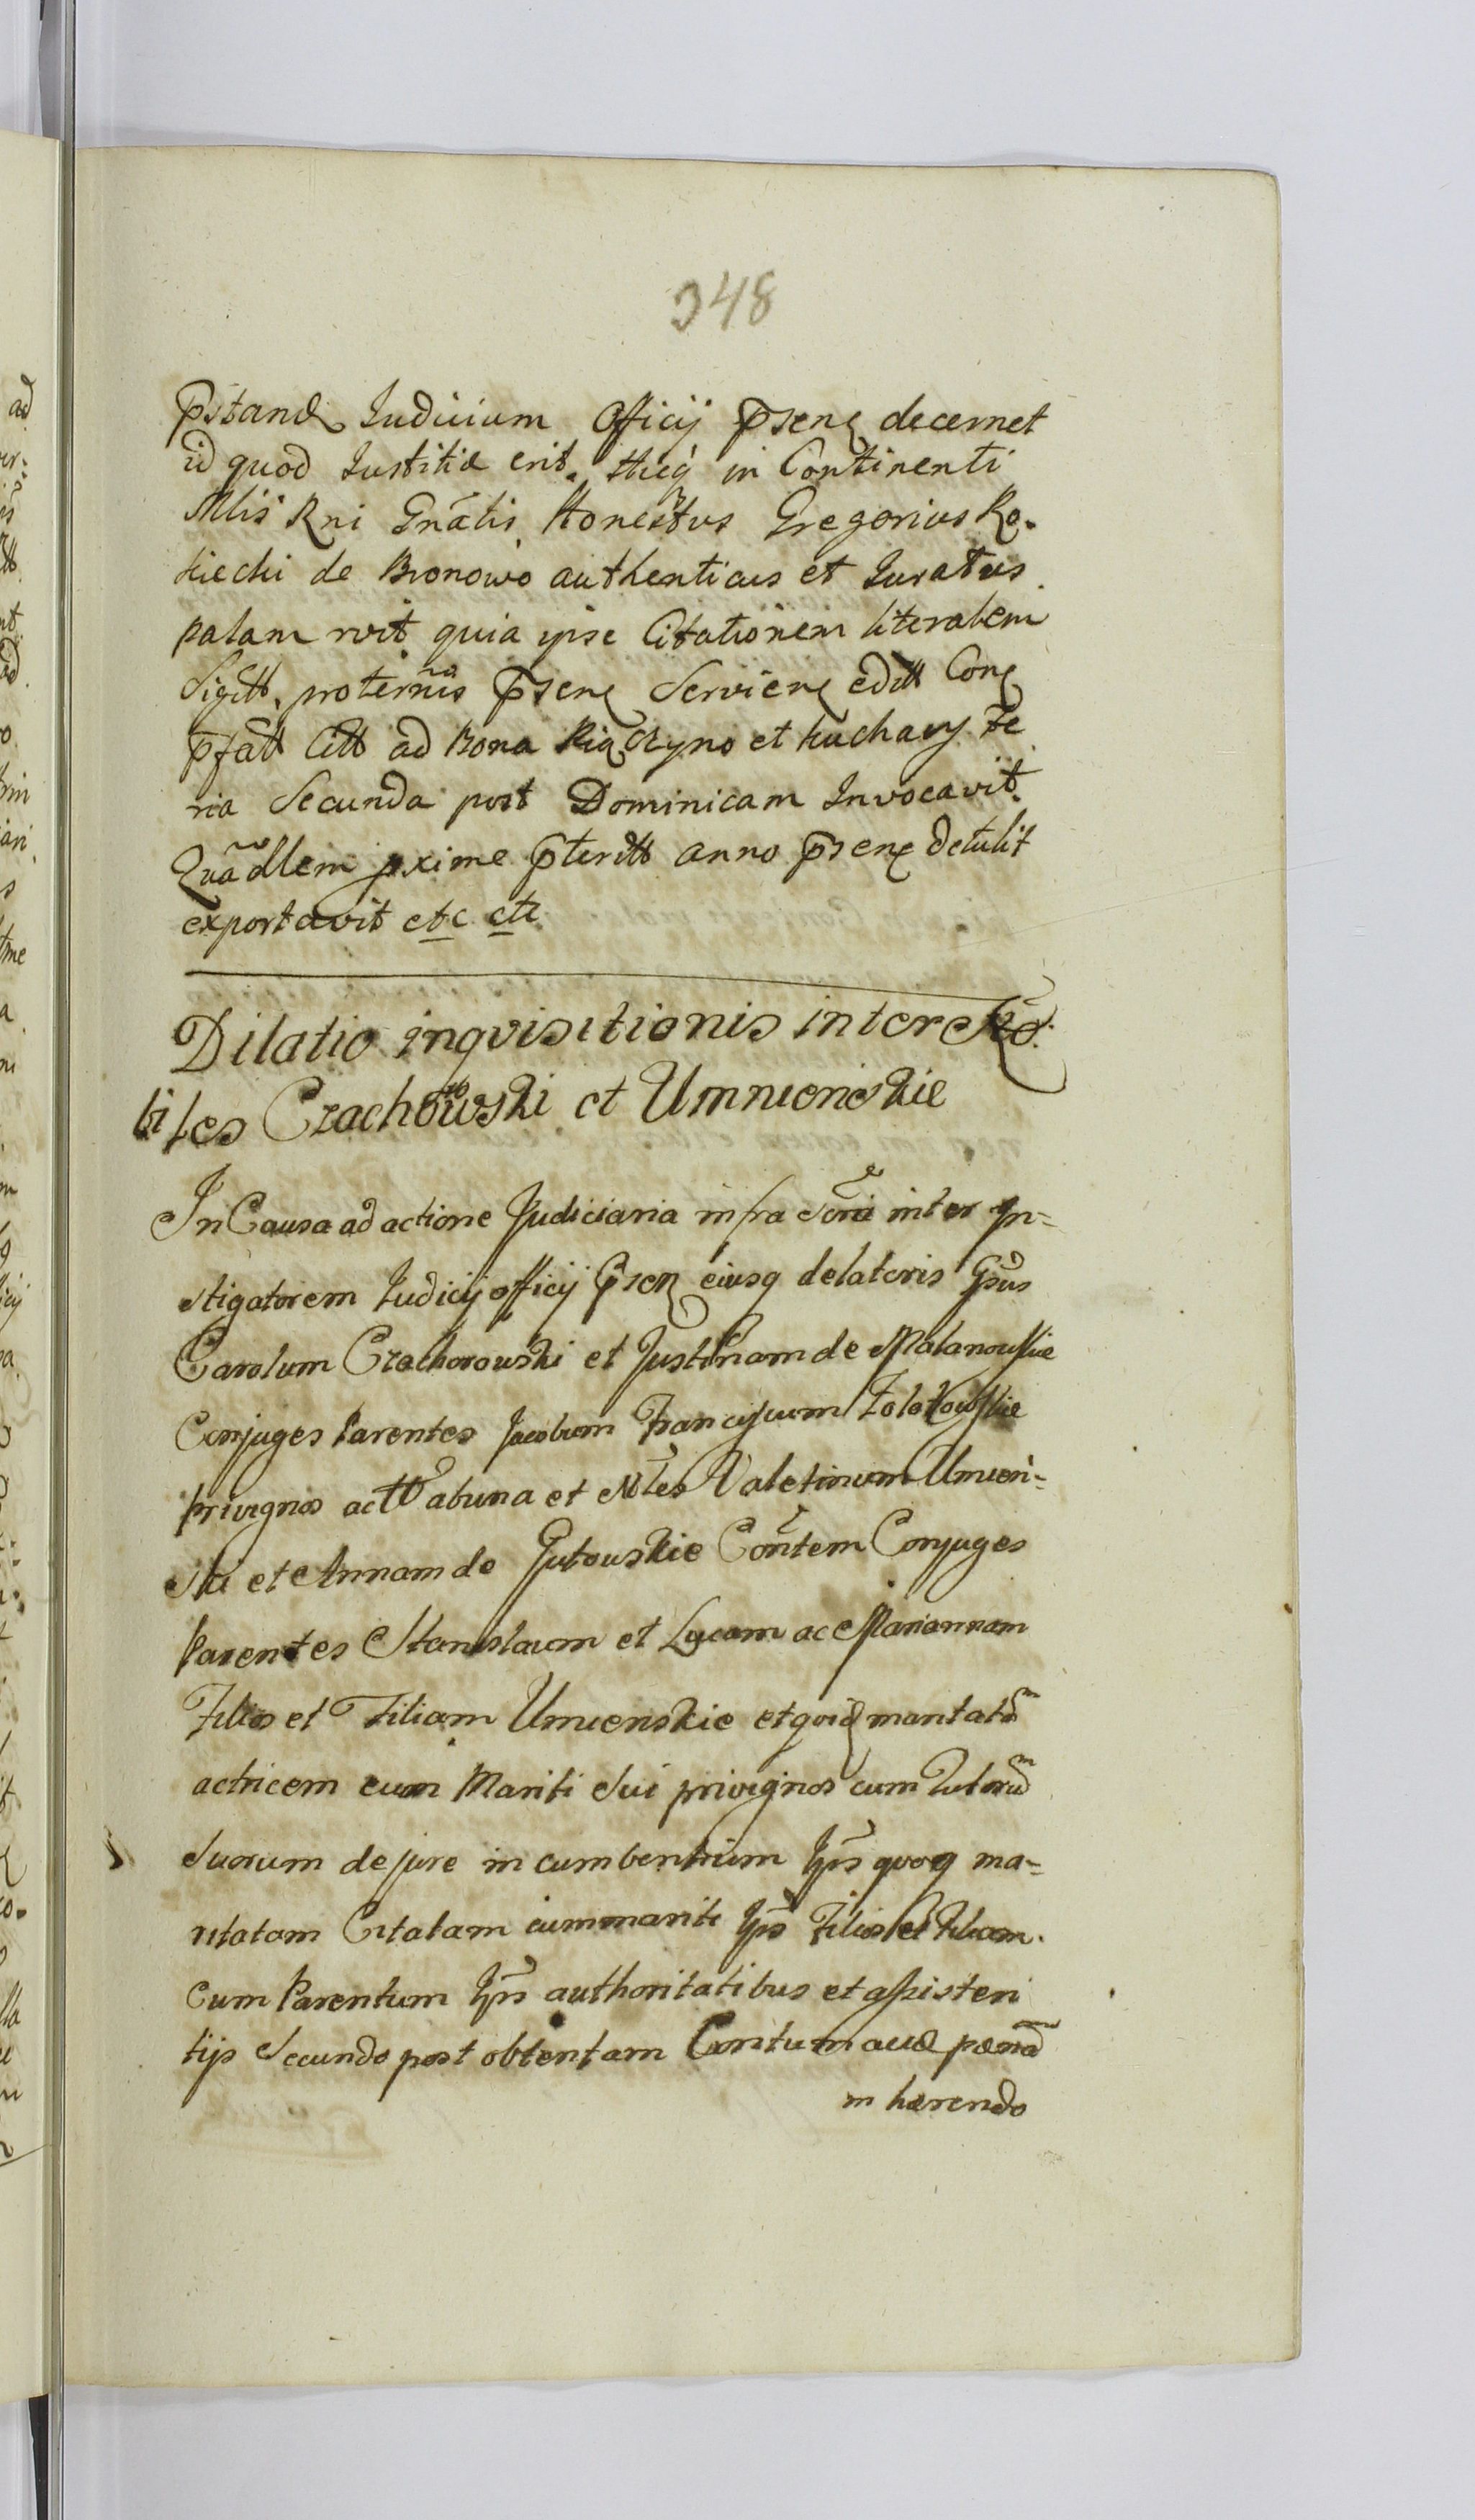 348
Pstand Judicium Officij Psens decernet
id quod Justitiæ erit. Hicq in Continenti
Mlis Rni Gnãlis Honestus Gregorius Ro-
kicki de Bronowo authenticus et Juratus
palam rvit quia ipse Citationem literalem
Sigitt. proternis Psens Serviens editt Cons
Pfatt Citt ad Bona Kuchary Fe
ria Secunda post Dominicam Invocavit
Quãdlem pxime Pteritt anno Psens detulit
exportavit etc etc
Dilatio inqvisitionis inter No-
biles Czachowski et Umnienskie
In Causa ad actione Judiciaria infra Scria inter In-
stigatorem Judicij officij Psen eiusq delatoris Gsus
Carolum Czachorowski et Justinam de Malanowskie
Conjuges Parentes Jacobum Franciscum Zolotowskie
privignos actt abuna et Nles Valetinum Umien-
ski et Annam de Gutouskie Contem Conjuges
Parentes Stanislaum et Lucam ac Mariannam
Filios et Filiam Umienskie et quid maritatam
actricem cum Mariti Sui privignos cum Tutorum
Suorum de jure in cumbentium Ips quoq ma-
ritatam Citatam cum mariti Ips Filios et Filiam.
Cum Parentum Ips authoritatibus et assisten
tijs Secundo post obtentam Contumaciæ pænã
in hærendo